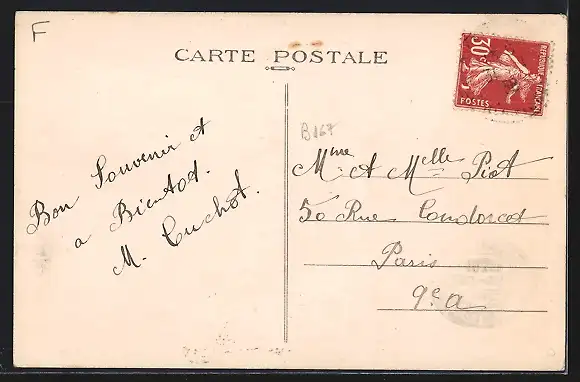 F
CARTE POSTALE
30c
REPUBLIQUE FRANÇAISE
POSTES
B167
Bon Souvenir et
a Bientot.
M. Cuchot.
Mme et Melle Piot
50 Rue Condorcet
Paris
9e a